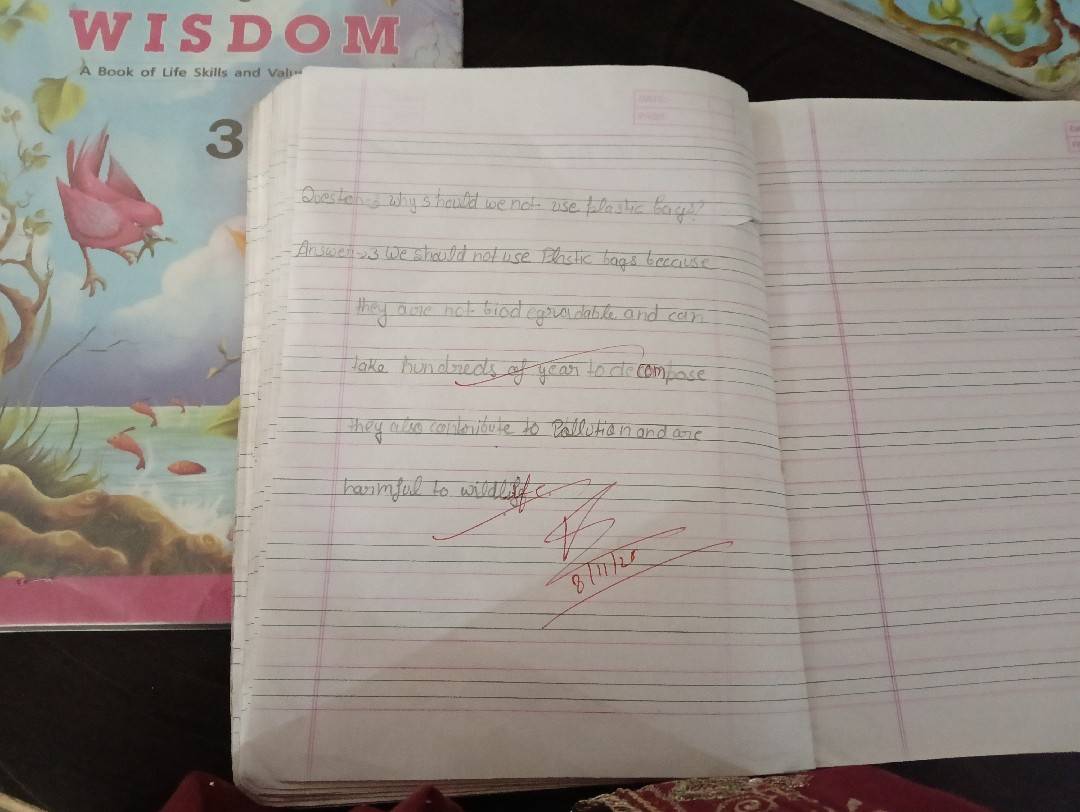 WISDOM
A Book of Life Skills and
3
why should we not use plastic bags?
Answer→3 We should not use Plastic bags because
they are not biodegradable and can
take hundreds of year to decompose
they also contribute to Pollution and are
harmful to wildlife.
8/11/2
DATE
PAGE